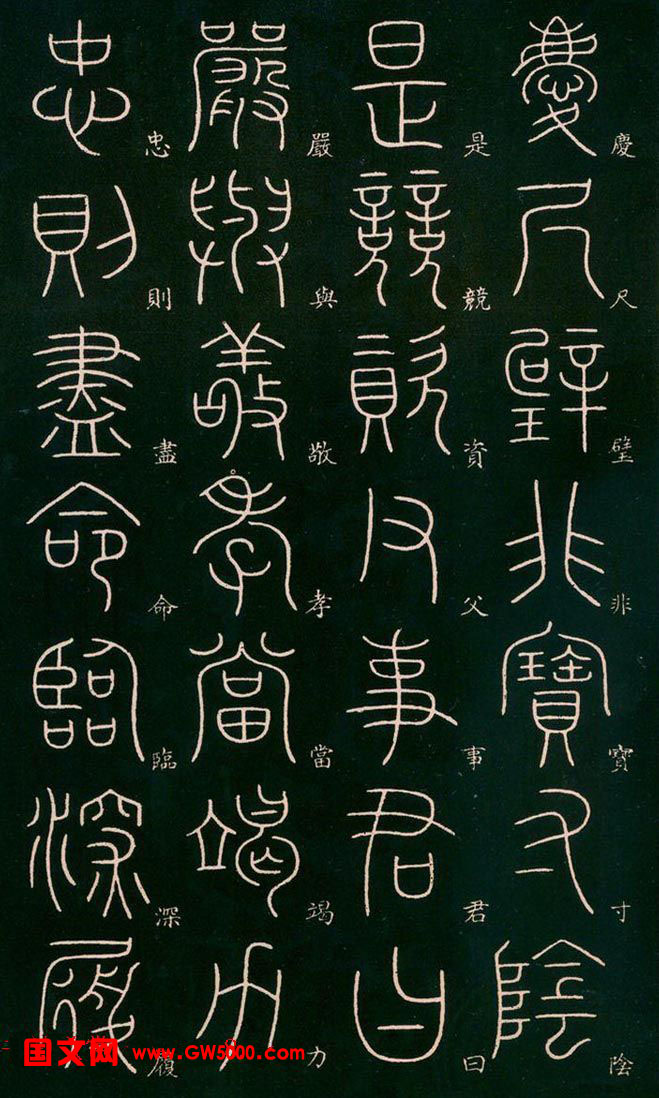 慶尺璧非寶寸陰
是競資父事君曰
嚴與敬孝當竭力
忠則盡命臨深履
国文网 www.GW5000.com